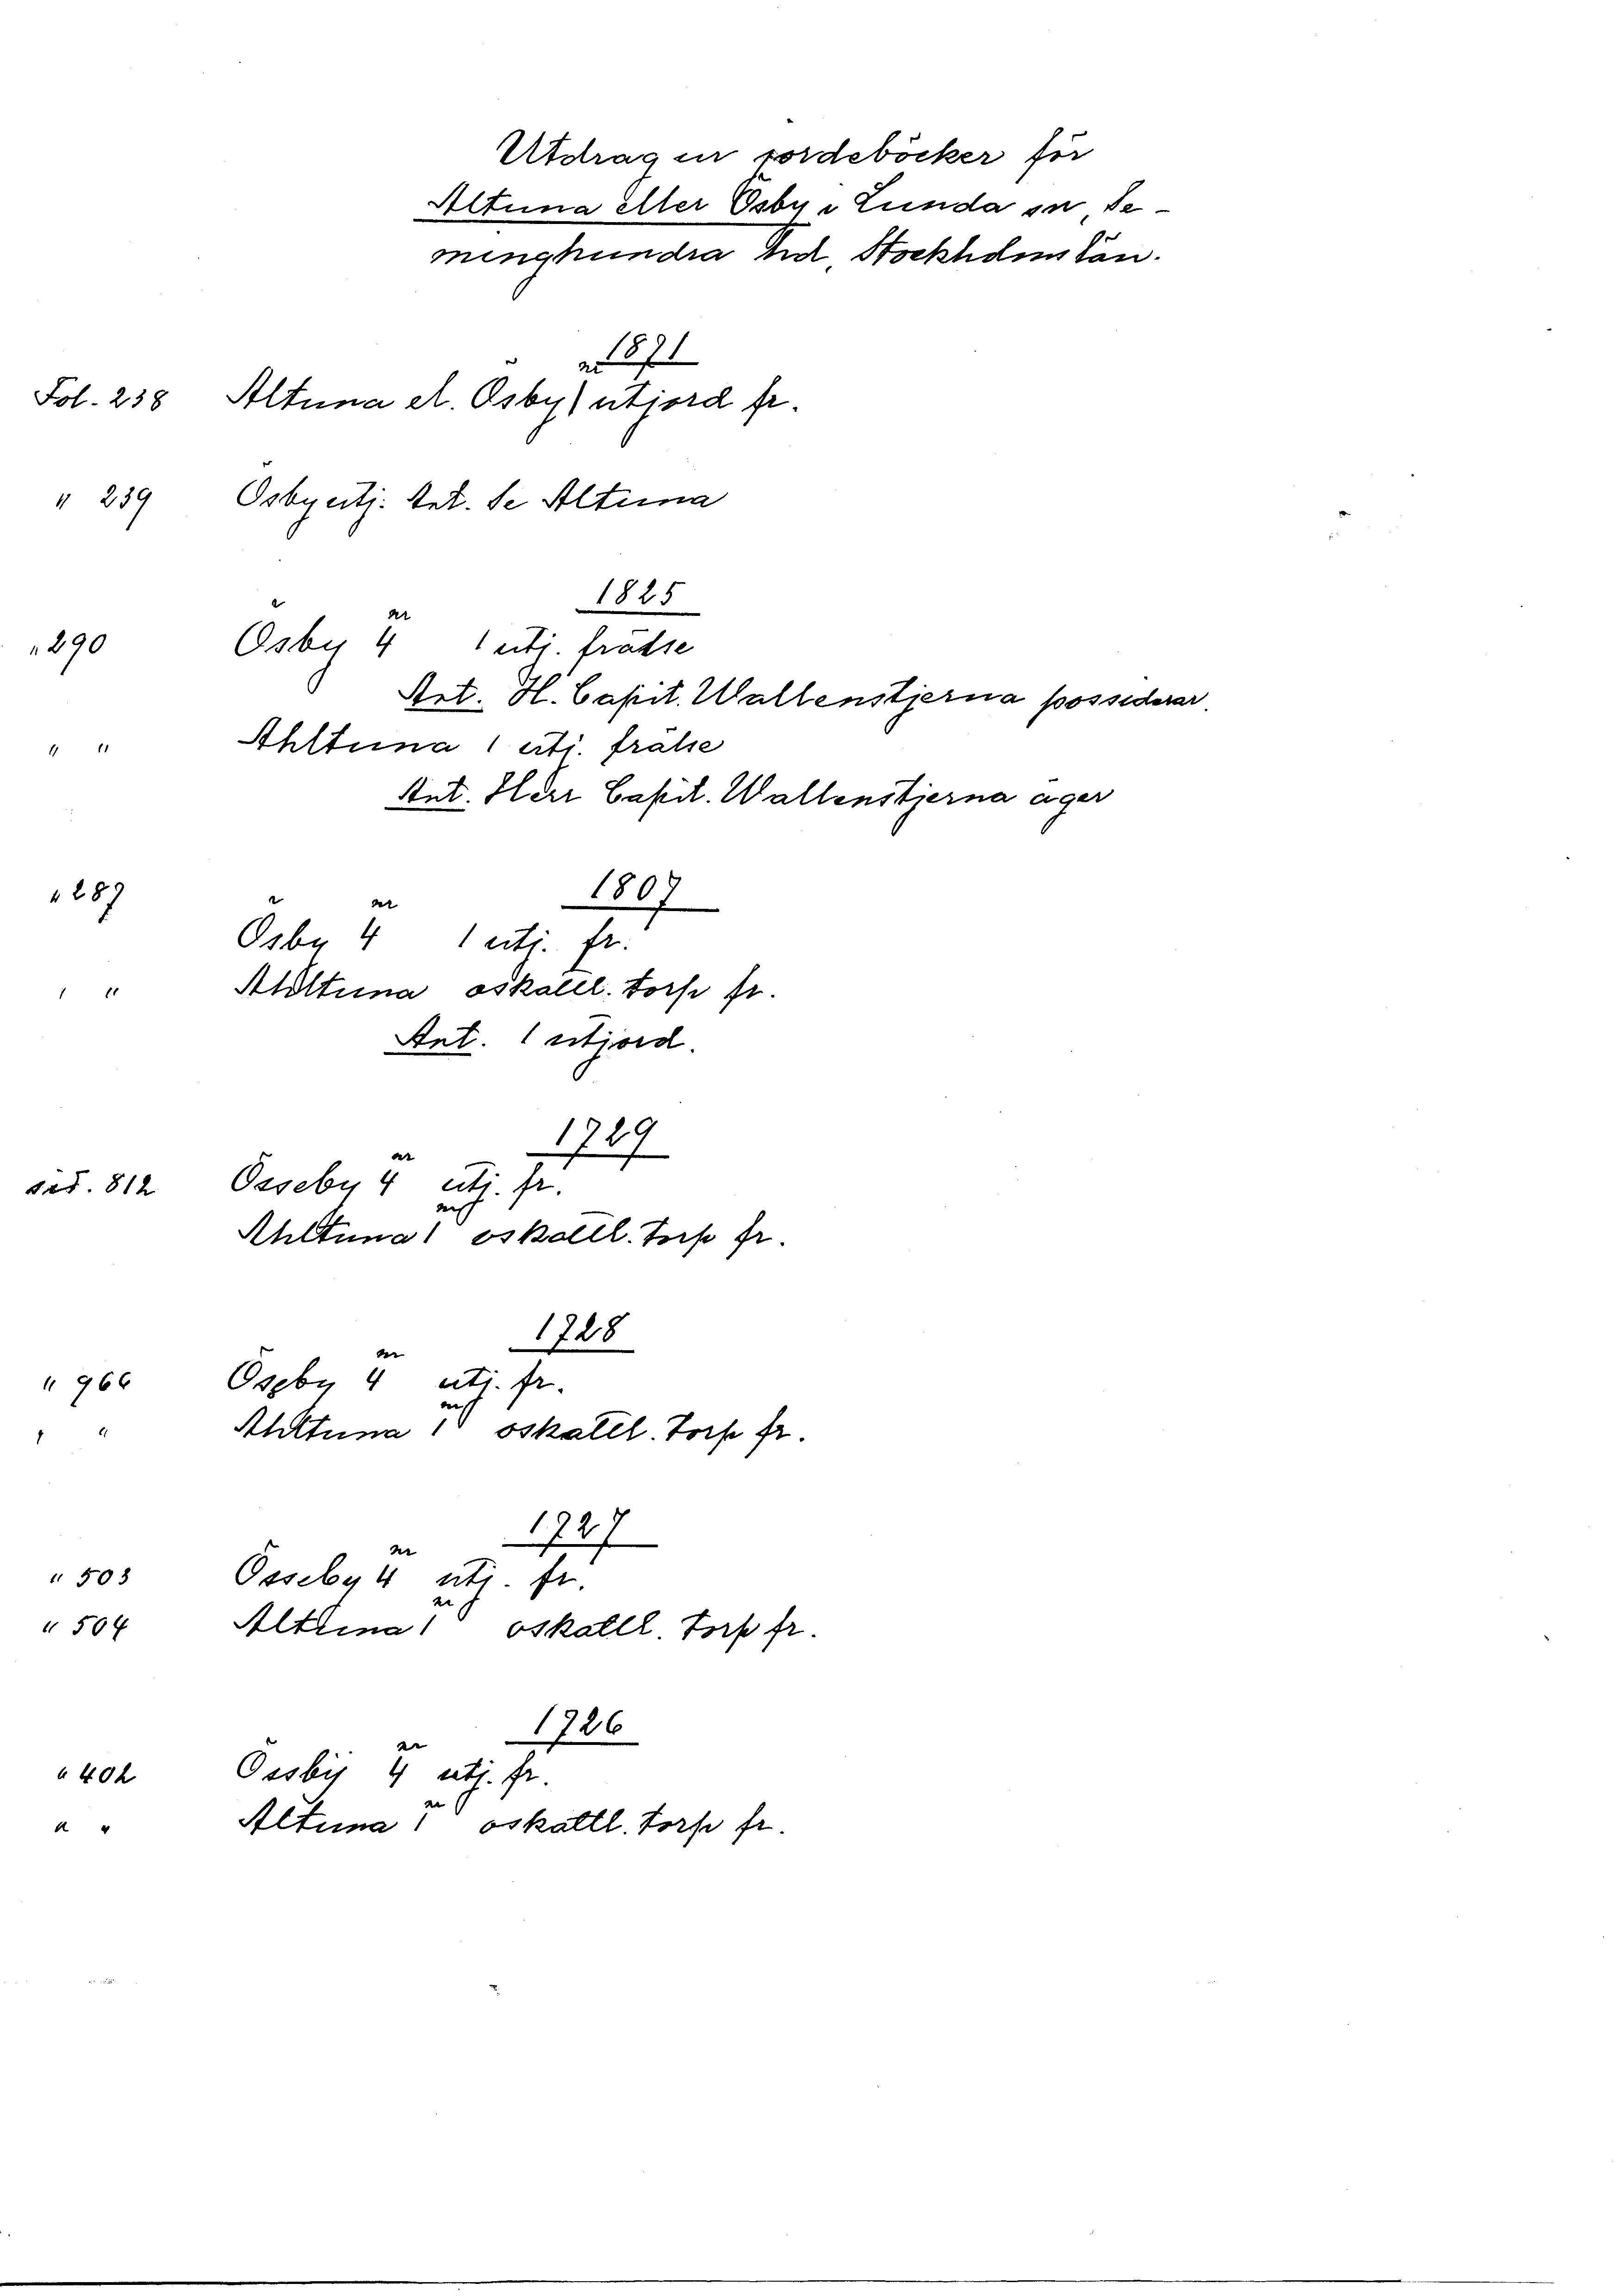 Utdrag ur jordeböcker för
Altuna eller Ösby i Lunda sn, Se-
minghundra hd, Stockholms län.
1871
Fol. 238 Altuna el. Ösby 1 nr utjord fr.
" 239 Ösby utj. Ant. Se Altuna
1825
" 290 Ösby 4 nr 1 utj. frälse
Ant. H. Capit. Wallenstjerna possiderar.
" " Ahltuna 1 utj. frälse
Ant. Herr Capit. Wallenstjerna äger
" 287 1807
Ösby 4 nr 1 utj. fr.
" " Ahltuna oskattl. torp fr.
Ant. 1 utjord.
1729
sid. 812 Össeby 4 nr utj. fr.
Ahltuna 1 nr oskattl. torp fr.
1728
" 966 Öseby 4 nr utj. fr.
" " Ahltuna 1 nr oskattl. Torp fr.
1727
" 503 Össeby 4 nr utj. fr.
" 504 Altuna 1 nr oskattl. Torp fr.
1726
" 402 Össbÿ 4 nr utj. fr.
" " Altuna 1 nr oskattl. torp fr.